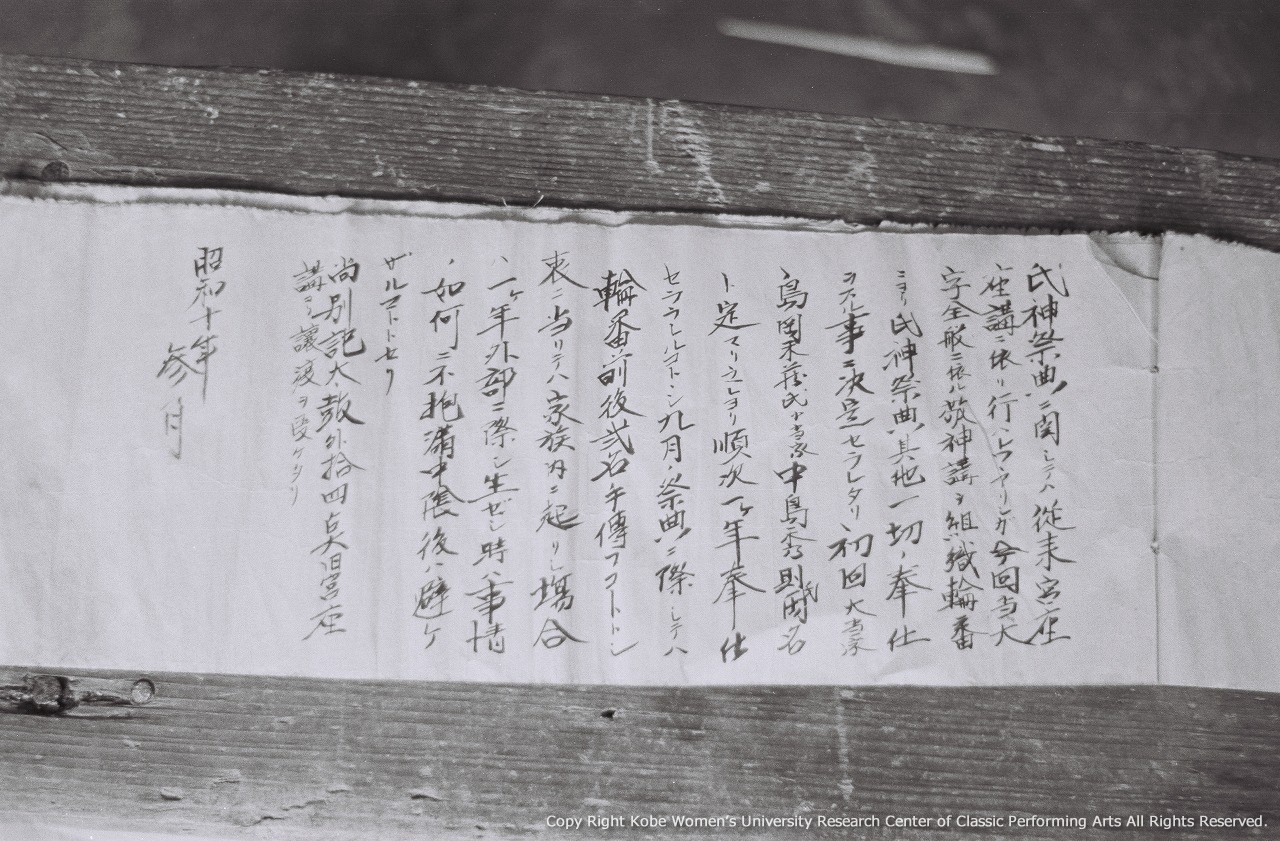 氏神祭典ニ関シテハ従来宮座
座講ニ依リ行ハレツヽアリシガ今回当大
字全般ニ依ル敬神講ヲ組織輪番
ニヨリ氏神祭典其他一切ノ奉仕
ヲナス事ニ決定セラレタリ初回大当家
島岡末蔵氏小当家中島秀則氏両名
ト定マリ之レヨリ順次一ケ年奉仕
セラルヽコトヽシ九月ノ祭典ニ際シテハ
輪番前後弐名手傳フコトヽシ
喪ニ当リテハ家族内ニ起リシ場合
ハ一ケ年外部ニ際シ生ゼシ時ハ事情
ノ如何ニ不抱満中陰後ハ避ケ
ザルコトトセリ
尚別記大鼓外拾四点旧宮座
講ヨリ譲渡ヲ受ケタリ
昭和十年
参月
Copy Right Kobe Women's University Research Center of Classic Performing Arts All Rights Reserved.